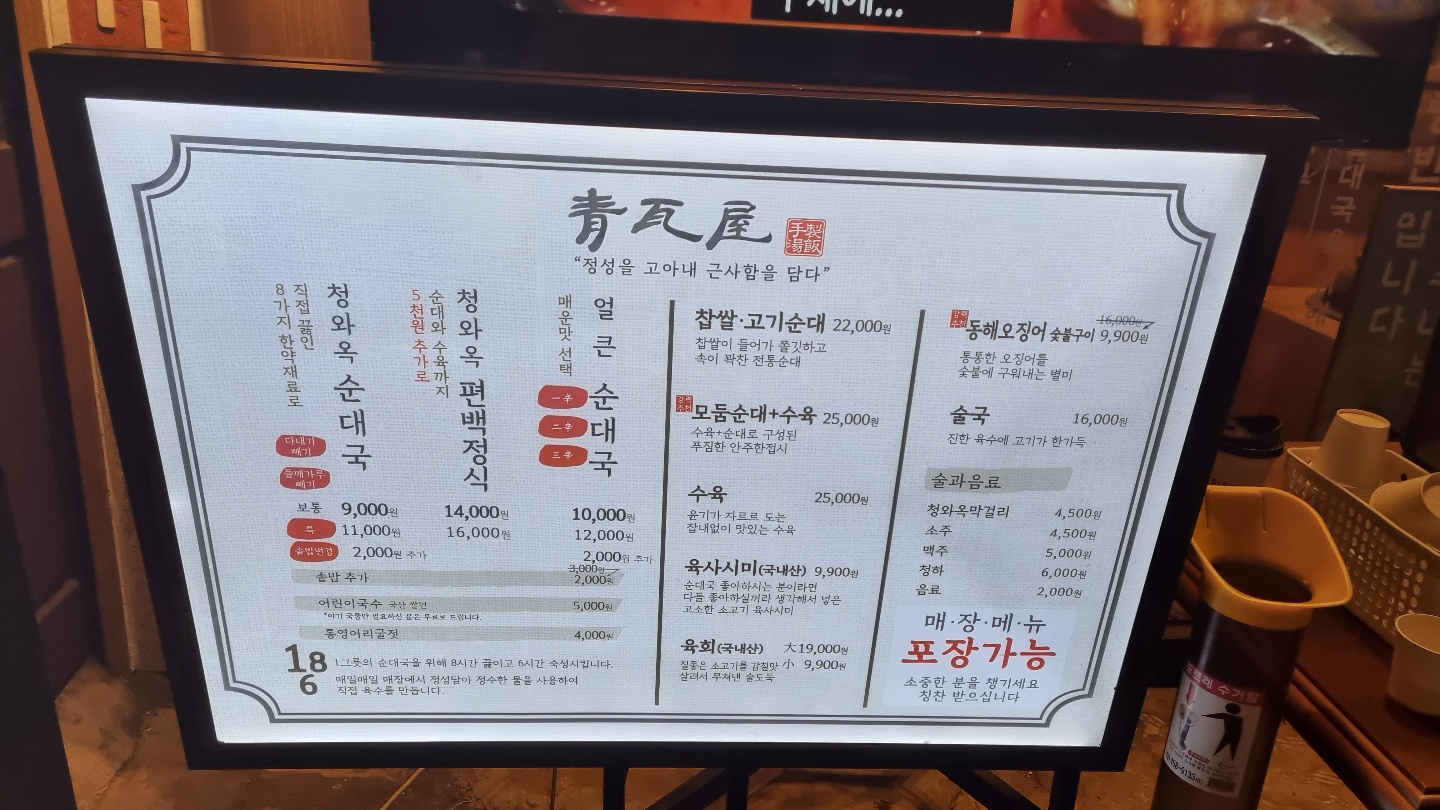 青瓦屋
手製
湯飯
“정성을 고아내 근사함을 담다”
청와옥 순대국
직접 끓인
8가지 한약재료로
다내기
빼기
들깨가루
빼기
보통 9,000원
특 11,000원
솥밥변경 2,000원 추가
청와옥 편백정식
순대와 수육까지
5천원 추가로
14,000원
16,000원
얼큰 순대국
매운맛 선택
一辛
二辛
三辛
10,000원
12,000원
2,000원 추가
솥밥 추가 3,000원 2,000원
어린이국수 국산 쌀면 5,000원
*아기 국물만 필요하신 분은 무료로 드립니다.
통영어리굴젓 4,000원
186
1그릇의 순대국을 위해 8시간 끓이고 6시간 숙성시킵니다.
매일매일 매장에서 정성담아 정수한 물을 사용하여
직접 육수를 만듭니다.
찹쌀·고기순대 22,000원
찹쌀이 들어가 쫄깃하고
속이 꽉찬 전통순대
강력
추천
모둠순대+수육 25,000원
수육+순대로 구성된
푸짐한 안주한접시
수육 25,000원
윤기가 자르르 도는
잡내없이 맛있는 수육
육사시미(국내산) 9,900원
순대국 좋아하시는 분이라면
다들 좋아하실꺼라 생각해서 넣은
고소한 소고기 육사시미
육회(국내산) 大 19,000원
질좋은 소고기를 감칠맛 小 9,900원
살려서 무쳐낸 술도둑
강력
추천
동해오징어 숯불구이 16,000원 9,900원
통통한 오징어를
숯불에 구워내는 별미
술국 16,000원
진한 육수에 고기가 한가득
술과음료
청와옥막걸리 4,500원
소주 4,500원
맥주 5,000원
청하 6,000원
음료 2,000원
매·장·메·뉴
포장가능
소중한 분을 챙기세요
칭찬 받으십니다
대국
입니다
수거함